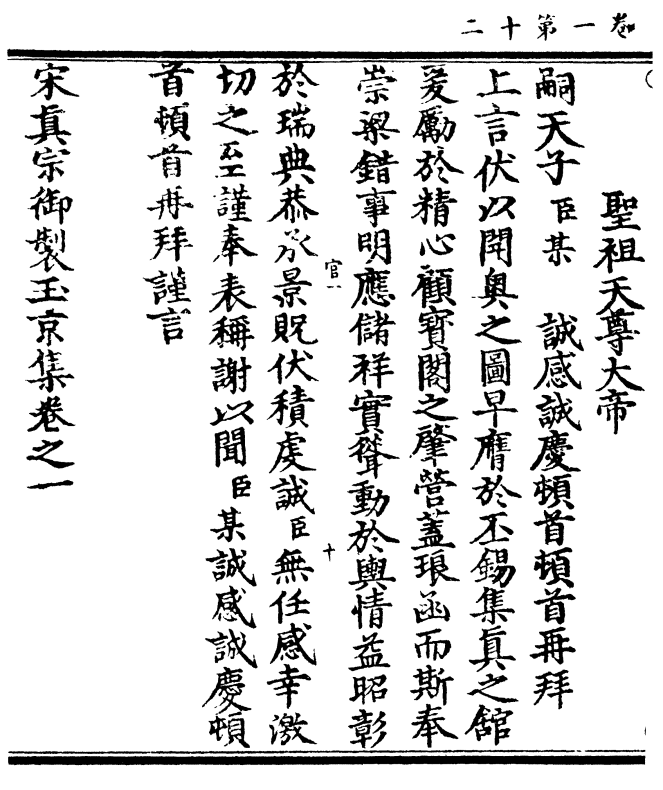 卷一第十二
聖祖天尊大帝
嗣天子臣某　誠感誠慶頓首頓首再拜
上言伏以開奧之圖早膺於丕錫集真之舘
爰勵於精心顧寳閣之肇營蓋琅函而斯奉
崇梁錯事明應儲祥實聳動於輿情益昭彰
官一　十
於瑞典恭承景貺伏積虔誠臣無任感幸激
切之至謹奉表稱謝以聞臣某誠感誠慶頓
首頓首再拜謹言
宋真宗御製玉京集卷之一